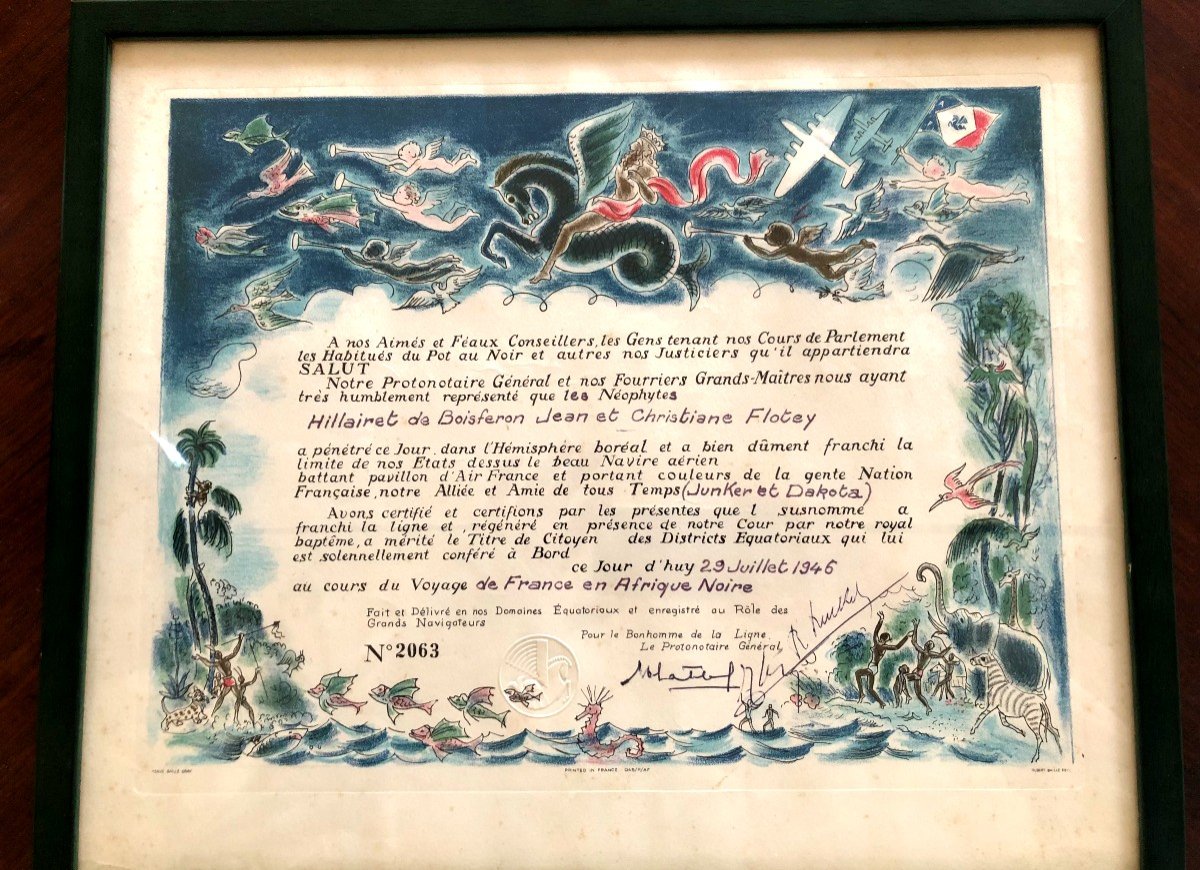 A nos Aimés et Féaux Conseillers, les Gens tenant nos Cours de Parlement
les Habitués du Pot au Noir et autres nos Justiciers qu'il appartiendra
SALUT
Notre Protonotaire Général et nos Fourriers Grands-Maîtres nous ayant
très humblement représenté que les Néophytes
Hillairet de Boisferon Jean et Christiane Flotey
a pénétré ce Jour dans l'Hémisphère boréal et a bien dûment franchi la
limite de nos Etats dessus le beau Navire aérien
battant pavillon d'Air France et portant couleurs de la gente Nation
Française, notre Alliée et Amie de tous Temps (Junker et Dakota)
Avons certifié et certifions par les présentes que l susnommé a
franchi la ligne et, régénéré en présence de notre Cour par notre royal
baptême, a mérité le Titre de Citoyen des Districts Equatoriaux qui lui
est solennellement conféré à Bord
ce Jour d'huy 29 Juillet 1946
au cours du Voyage de France en Afrique Noire
Fait et Délivré en nos Domaines Équatoriaux et enregistré au Rôle des
Grands Navigateurs
Pour le Bonhomme de la Ligne
Le Protonotaire Général
N° 2063
PRINTED IN FRANCE